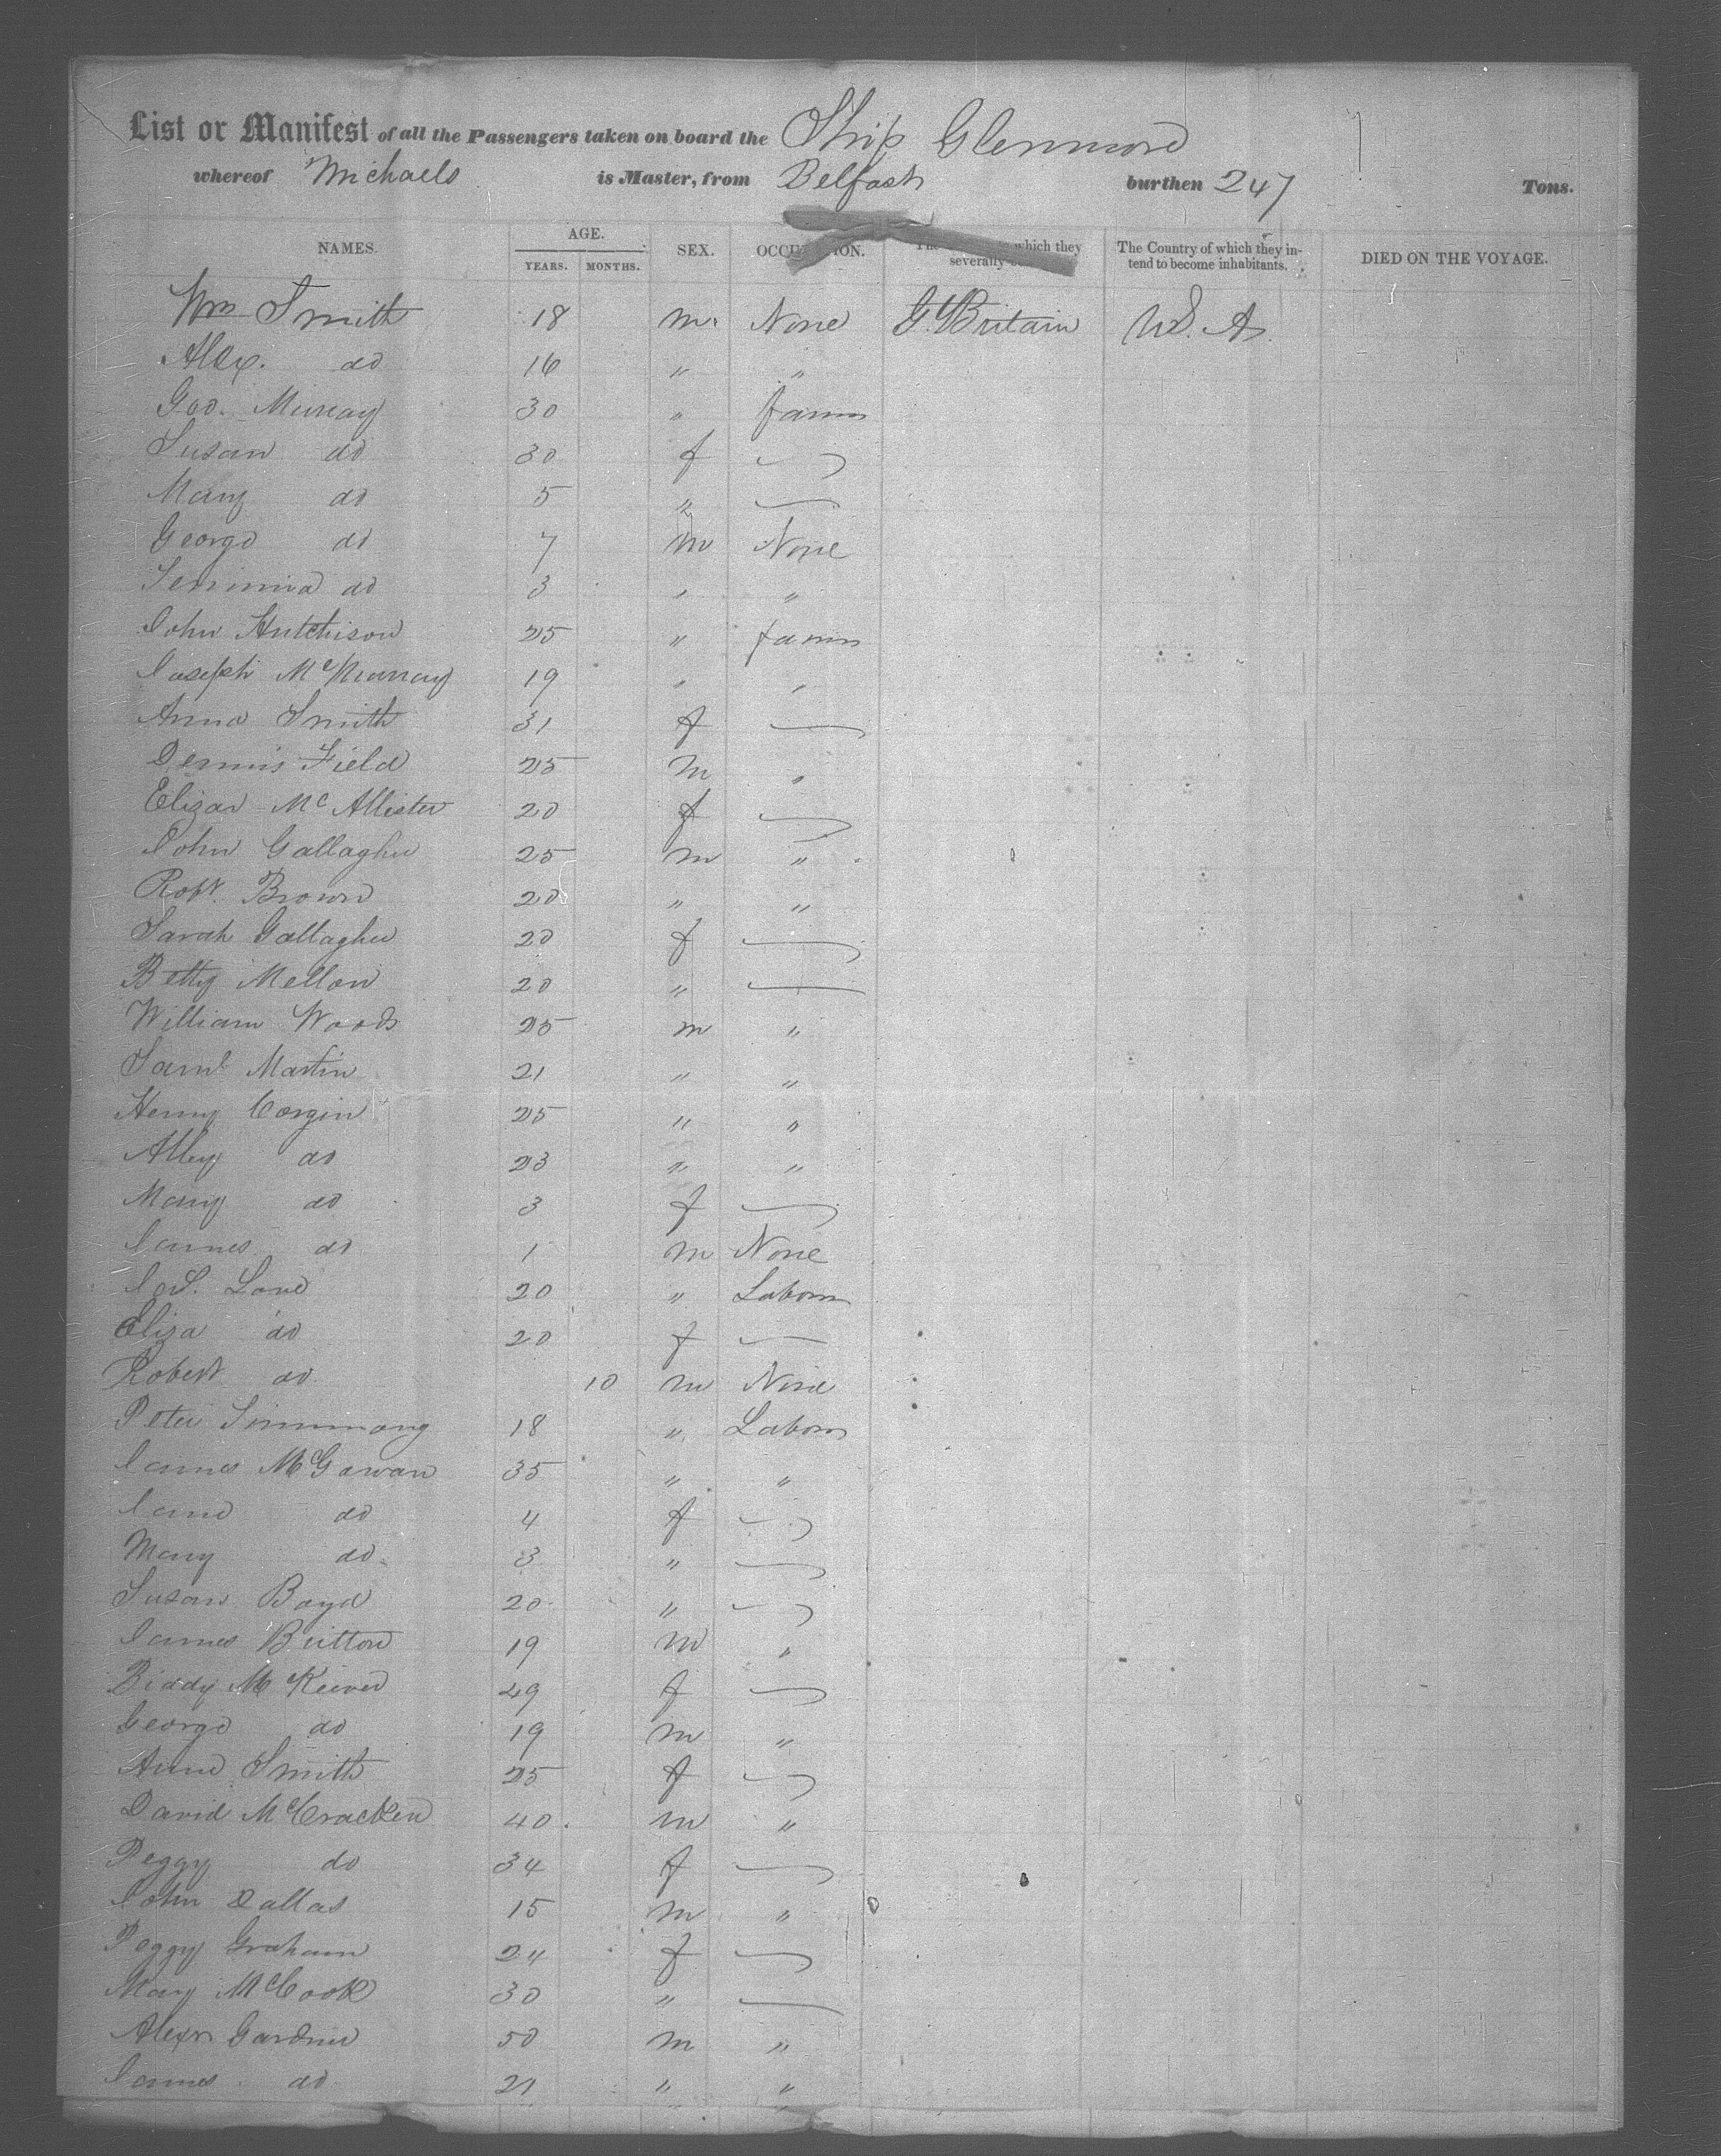 List or Manifest of all the Passengers taken on board the Ship Glenmore
whereof Michaels is Master, from Belfast burthen 247 Tons.
NAMES. AGE. YEARS. MONTHS. SEX. OCCUPATION. The which they severally The Country of which they intend to become inhabitants. DIED ON THE VOYAGE.
Wm Smith 18 m. None Gt Britain U.S. A.
Alex. do 16 " "
Geo. Murray 30 " farmr
Susan do 30 f —
Mary do 5 " —
George do 7 m None
Jemimia do 3 " "
John Hutchison 25 " farmr
Joseph McMurray 19 " "
Anna Smith 31 f —
Dennis Field 25 m "
Elizar McAllister 20 f —
John Gallagher 25 m "
Robt. Brown 20 " "
Sarah Gallagher 20 f —
Betty Mellon 20 " —
William Woods 25 m "
Saml Martin 21 " "
Henry Corgin 25 " "
Alley do 23 " "
Mary do 3 f —
James do 1 m None
Love 20 " Laborr
Eliza do 20 f —
Robert do 10 m None
Peter Simmong 18 " Laborr
James McGowan 35 " "
Jane do 4 f —
Mary do 3 " —
Susan Boyd 20 " —
James Britton 19 m "
Biddy McKeever 49 f —
George do 19 m "
Anne Smith 25 f —
David McCracken 40 m "
Peggy do 34 f —
John Dallas 15 m "
Peggy Graham 24 f —
Mary McCook 30 " —
Alexr Gardner 50 m "
James do 21 " "